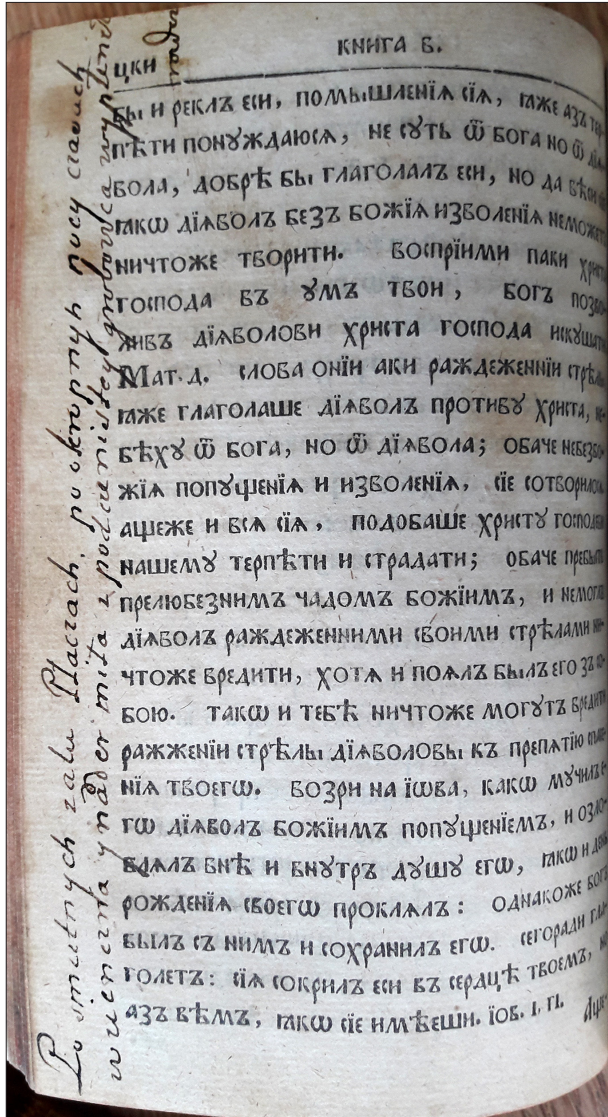 КНИГА Б.
цки
бы и реклъ еси, помышленїѧ сїѧ, ꙗже азъ
пѣти понуждаюсѧ, не суть ѿ Бога но ѿ дїѧ
вола, добрѣ бы глаголалъ еси, но да вѣси
ꙗкѡ дїѧволъ безъ божїѧ изволенїѧ неможетъ
ничтоже творити. Воспрїими паки христа
господа въ умъ твои, Богъ позво
живъ дїѧволови христа господа искушати
Мат. д. слова онїи аки раждеженнїи стрѣлы
ꙗже глаголаше дїѧволъ противу христа, не
бѣху ѿ Бога, но ѿ дїѧвола; обаче небезбо
жїѧ попущенїѧ и изволенїѧ, сїе сотворилосѧ
ащеже и всѧ сїѧ, подобаше христу господеви
нашему терпѣти и страдати; обаче пребысть
прелюбезнимъ чадомъ божїимъ, и немоглъ
дїѧволъ раждеженними своими стрѣлами ни
чтоже вредити, хотѧ и поѧлъ былъ его зъ со
бою. Такѡ и тебѣ ничтоже могутъ вредити
ражженїи стрѣлы дїѧволовы къ препѧтїю спасе
нїѧ твоегѡ. Возри на їѡва, какѡ мучилъ е
гѡ дїѧволъ божїимъ попущенїемъ, и озло
блѧлъ внѣ и внутръ душу егѡ, ꙗкѡ и день
рожденїѧ своегѡ проклѧлъ: Однакоже Богъ
былъ съ нимъ и сохранилъ егѡ. сегоради гла
голетъ: сїѧ сокрилъ еси въ сердцѣ твоемъ, но
азъ вѣмъ, ꙗкѡ сїе имѣеши. їов. і, гі.
Аще
Po smutnych zalu Płaczach, po okropnych nocy